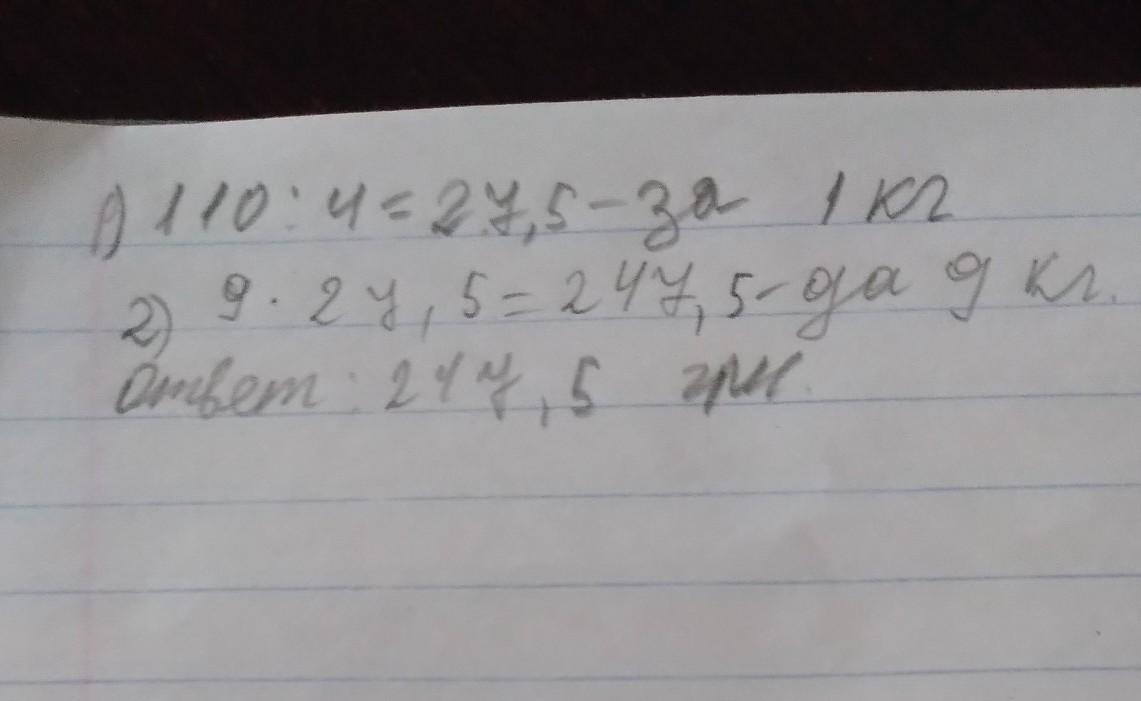 1) 110 : 4 = 27,5 - за 1 кг
2) 9 · 27,5 = 247,5 - да 9 кг.
Ответ: 247,5 грн.